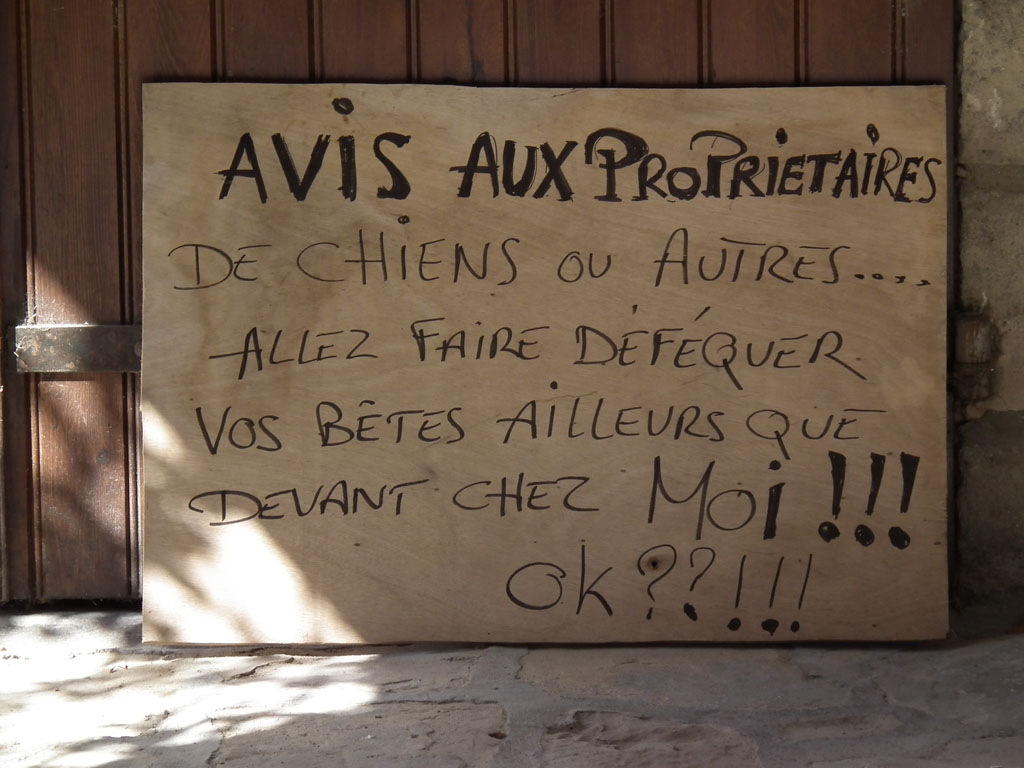 AViS AUX PROPRiETAiRES
DE CHiENS OU AUTRES.....
ALLEZ FAiRE DÉFÉQUER
VOS BÊTES AiLLEURS QUE
DEVANT CHEZ Moi !!!
Ok??!!!